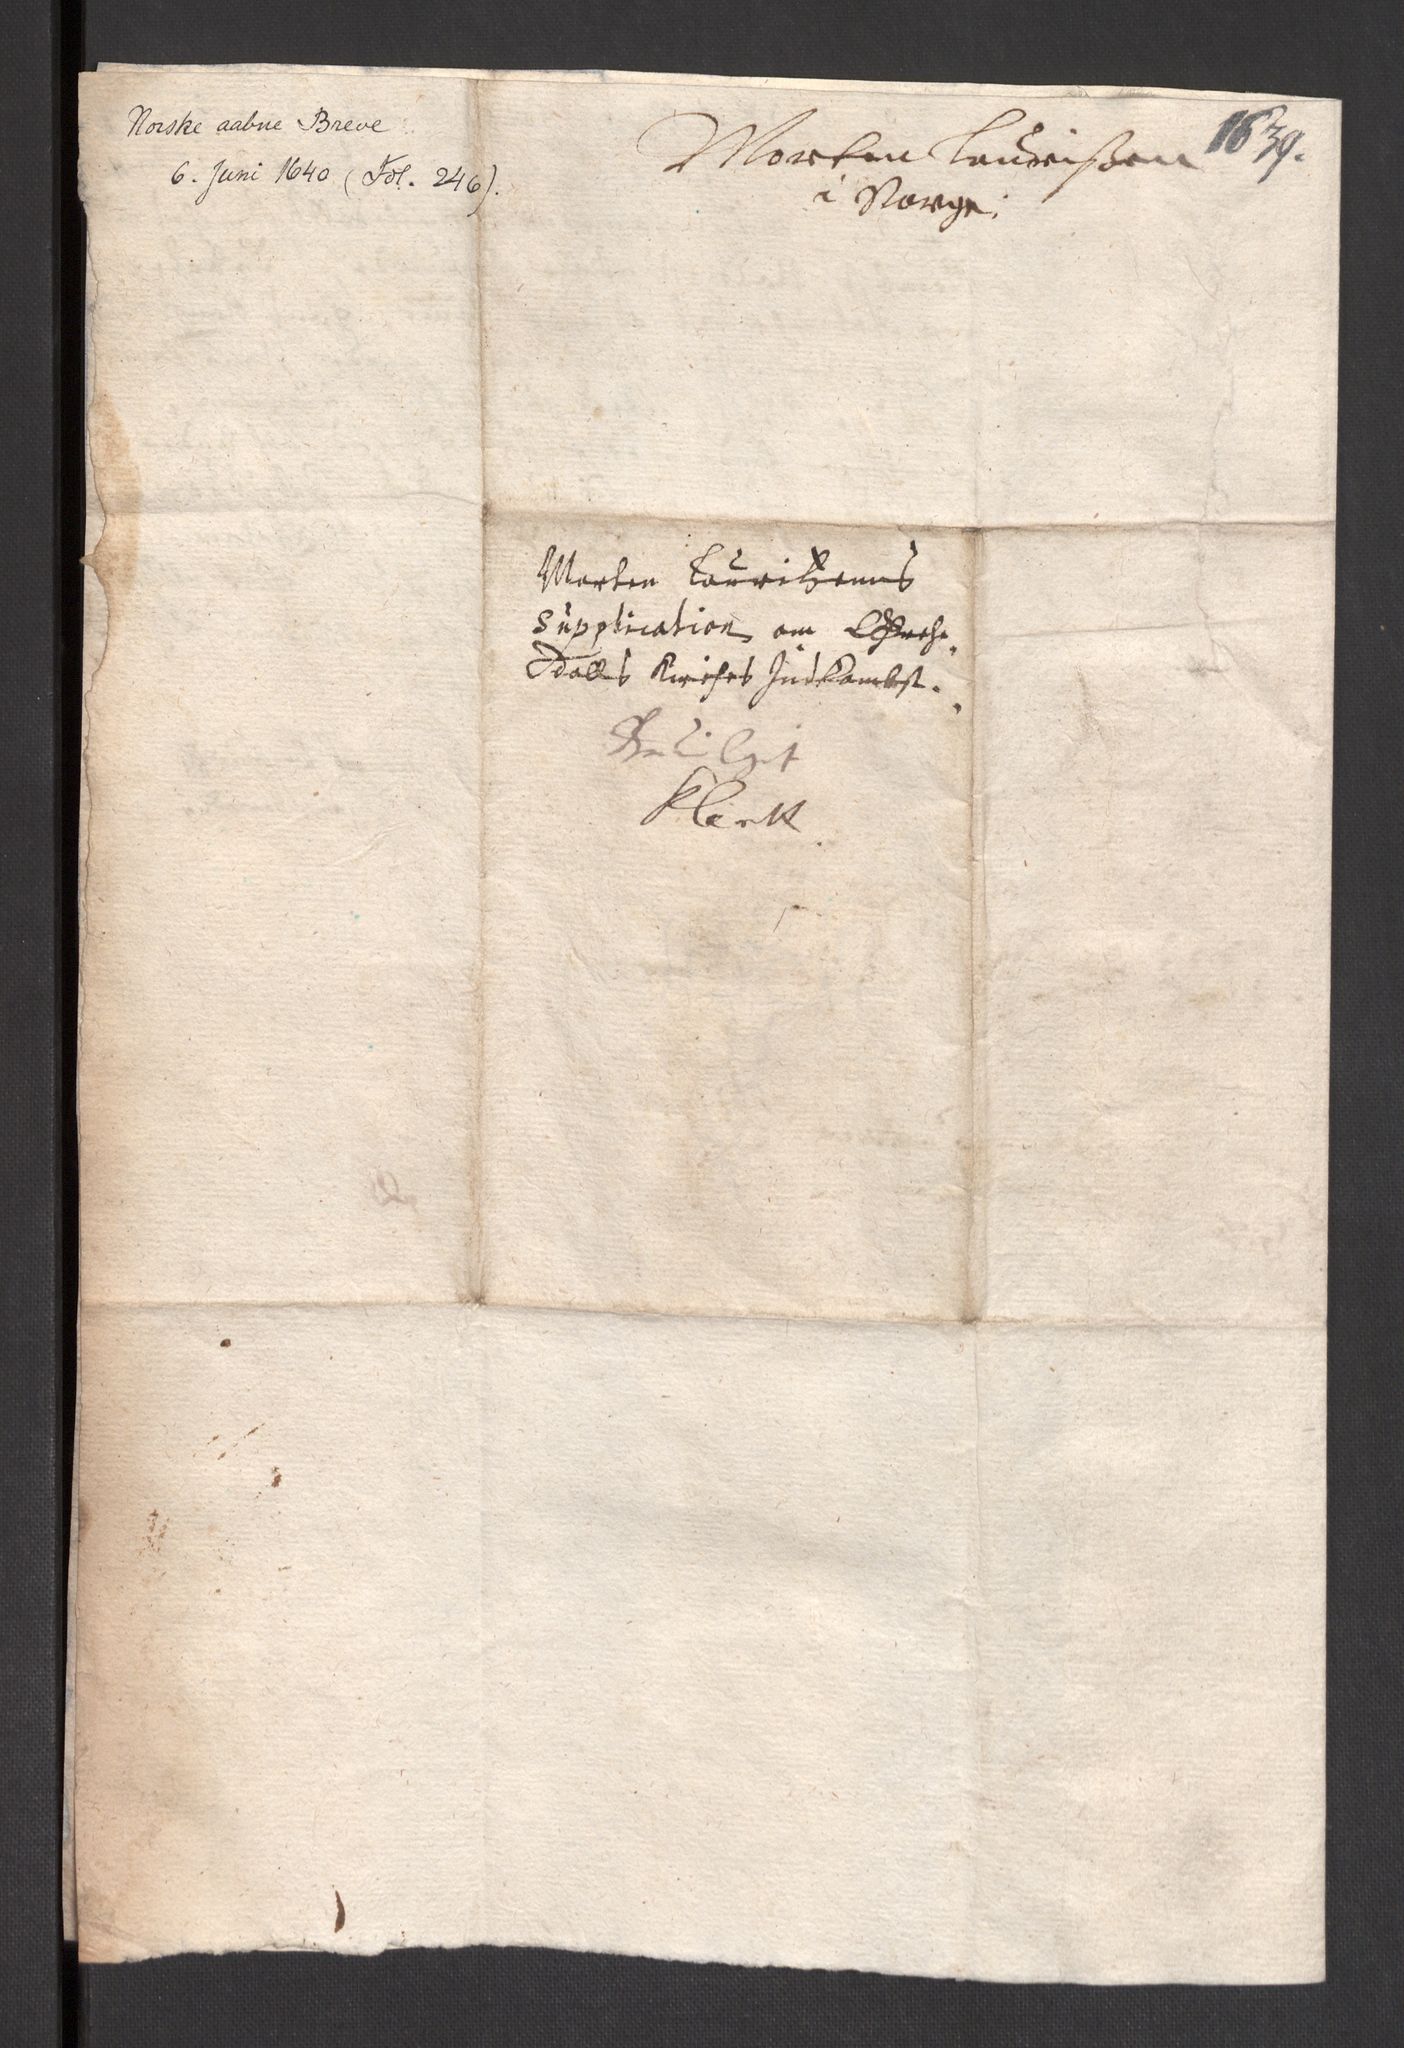 Norske aabne Breve
6. Juni 1640 (Fol. 246).
1639.
Morten Lauridßen
i Norge.
Morten Lauritzenns
Supplication om
Dalls Kirches Indkombst.